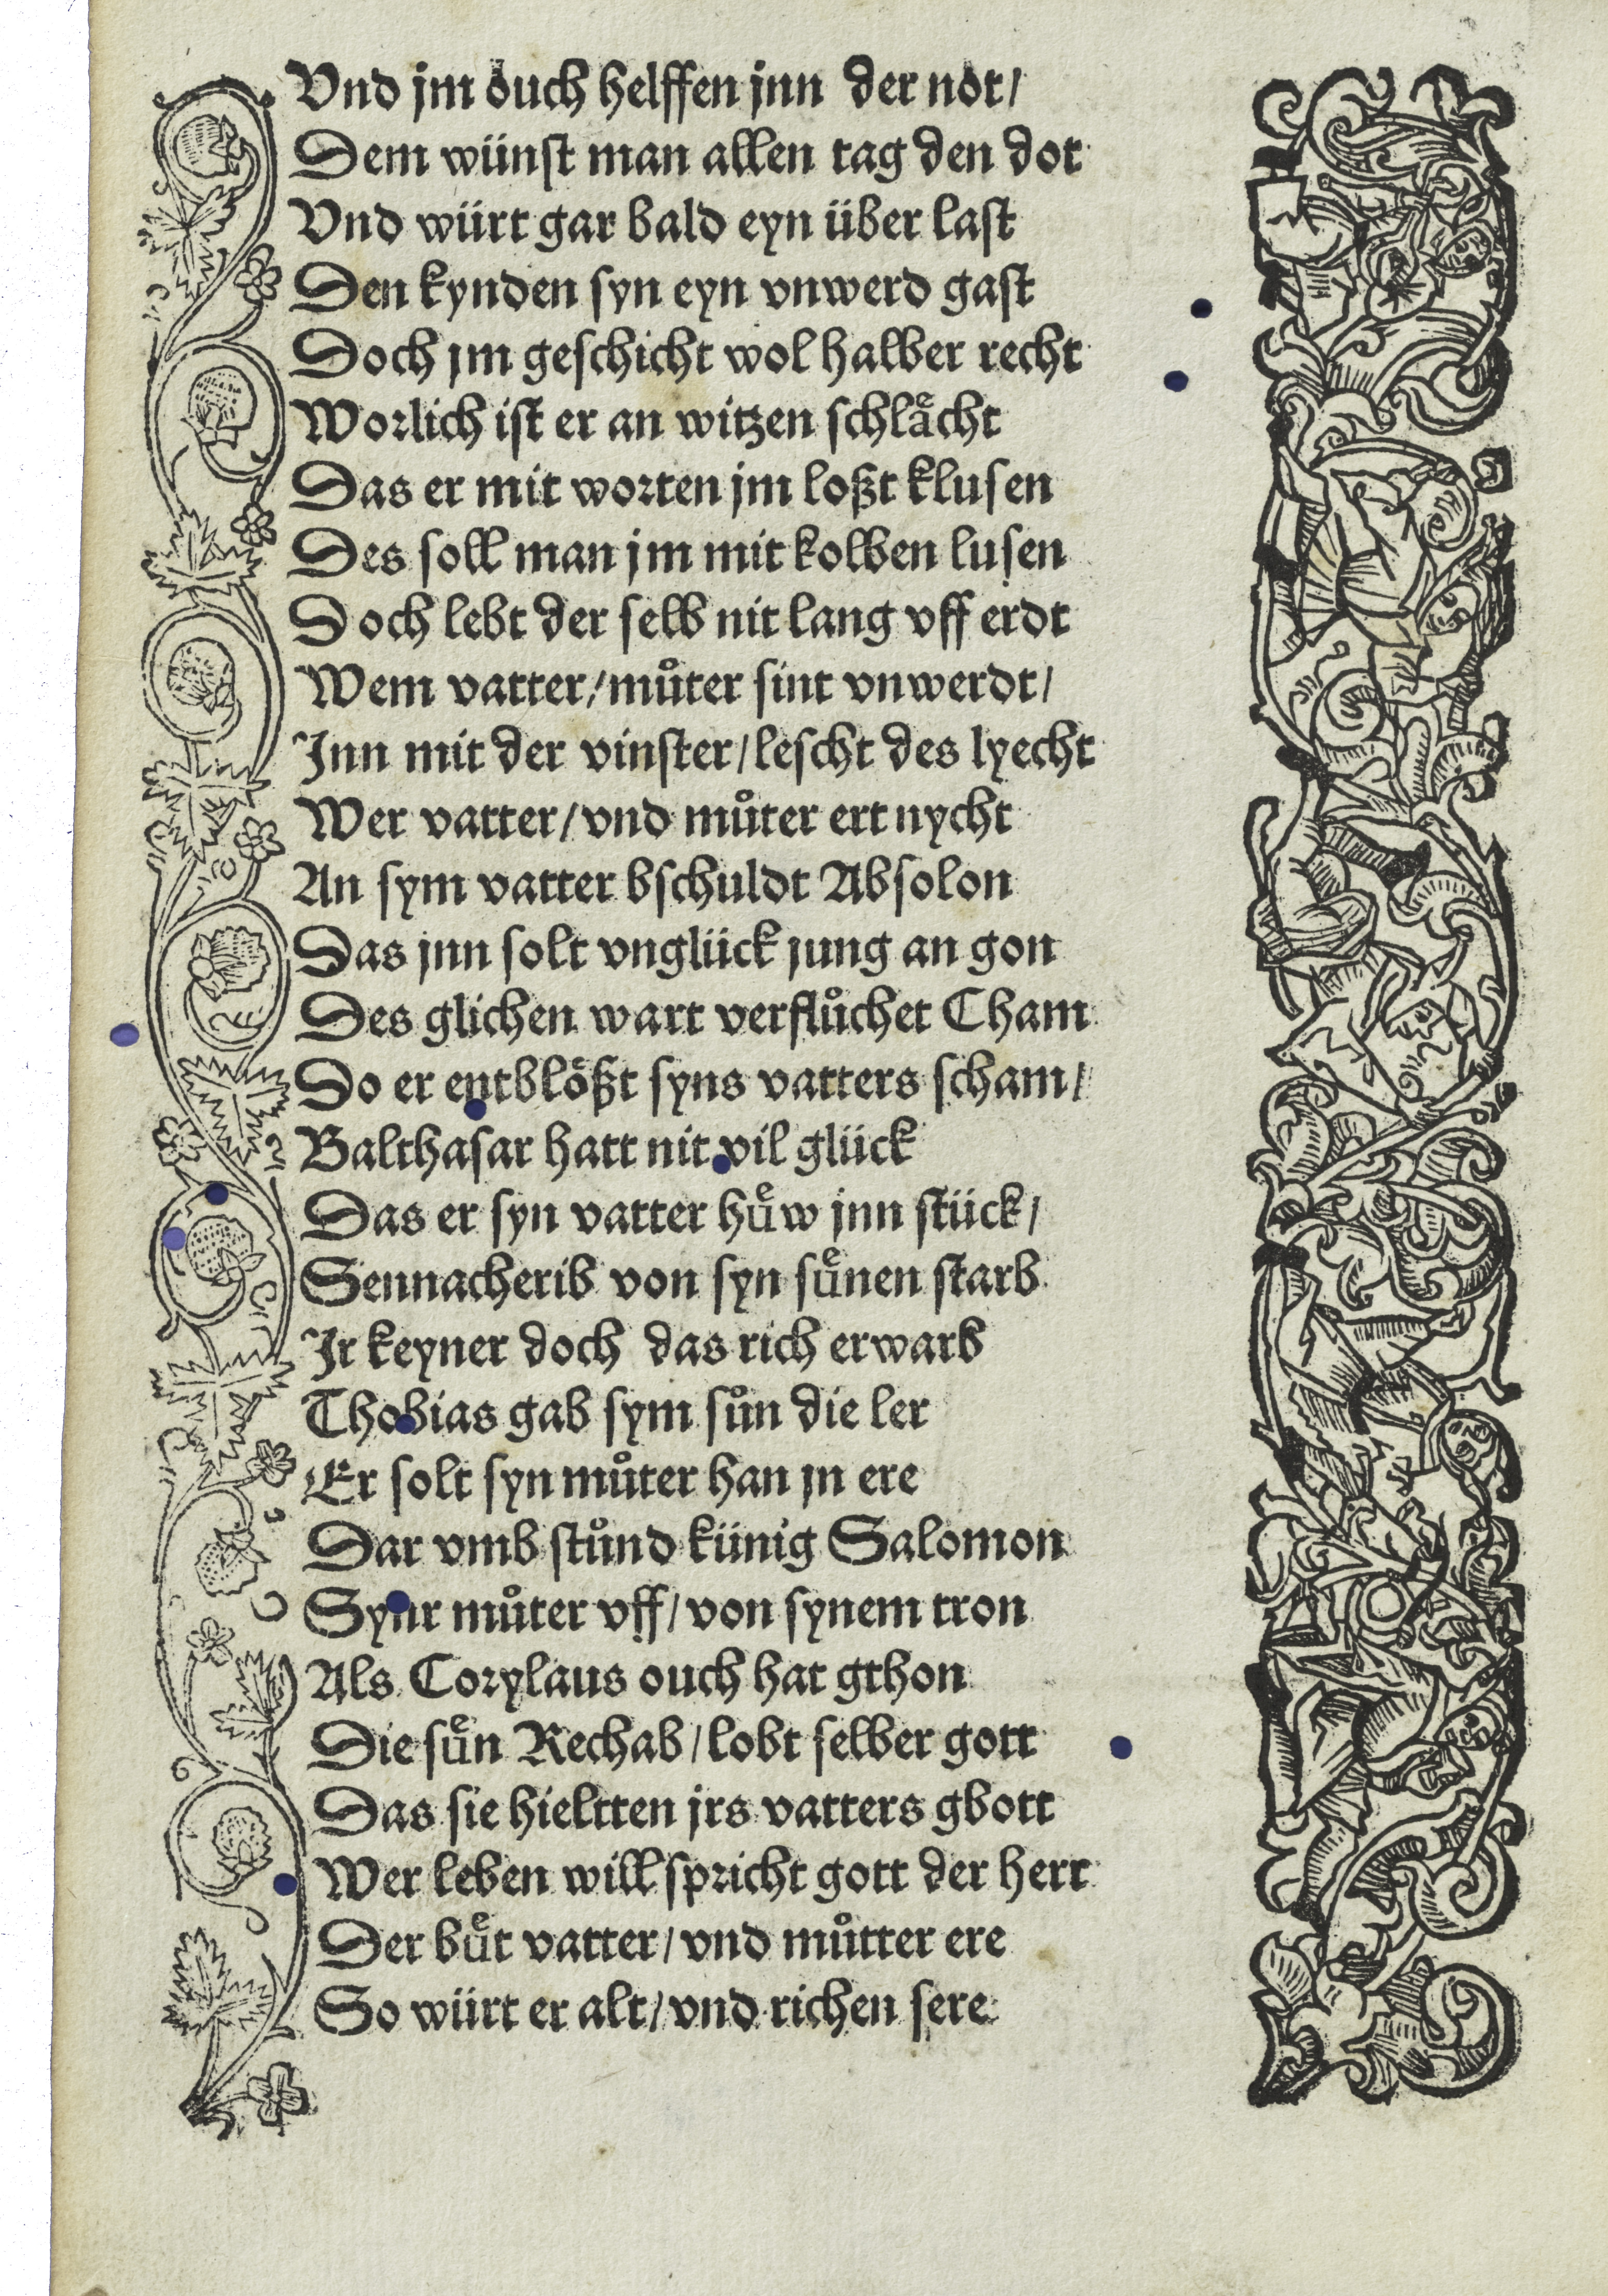 Vnd jm ouch helffen jnn der not/
Dem wünſt man allen tag den dot
Vnd würt gar bald eyn über laſt
Den kynden ſyn eyn vnwerd gaſt
Doch jm geſchicht wol halber recht
Worlich iſt er an witzen ſchlaͤcht
Das er mit worten jm loßt kluſen
Des ſoll man jm mit kolben luſen
Doch lebt der ſelb nit lang vff erdt
Wem vatter/muͦter ſint vnwerdt/
Jnn mit der vinſter/leſcht des lyecht
Wer vatter/vnd muͦter ert nycht
An ſym vatter bſchuldt Abſolon
Das jnn ſolt vnglück jung an gon
Des glichen wart verfluͦchet Cham
Do er entbloͤßt ſyns vatters ſcham/
Balthaſar hatt nit vil glück
Das er ſyn vatter huͤw jnn ſtück/
Sennacherib von ſyn ſuͤnen ſtarb
Jr keyner doch das rich erwarb
Thobias gab ſym ſuͦn die ler
Er ſolt ſyn muͦter han jn ere
Dar vmb ſtuͦnd künig Salomon
Synr muͦter vff/von ſynem tron
Als Corylaus ouch hat gthon
Die ſuͤn Rechab/lobt ſelber gott
Das ſie hieltten jrs vatters gbott
Wer leben will ſpricht gott der herr
Der buͤt vatter/vnd muͦtter ere
So würt er alt/vnd richen ſere